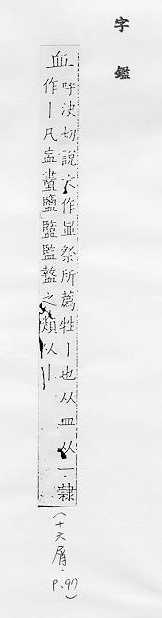 字鑑
血
呼決切說文作祭所薦牲丨也从皿从一隸
作丨凡衋監之類从丨
(十六屑. p.97)